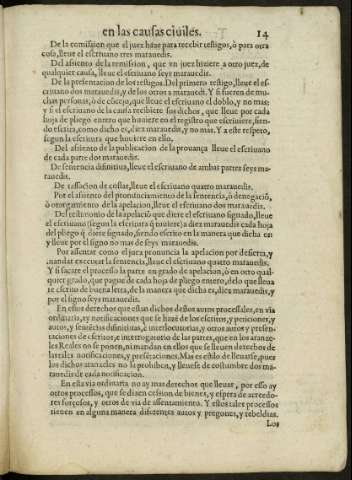 en las causas ciuiles. 14
De la comission que el juez haze para recebir testigos, ò para otra
cosa, lleue el escriuano tres marauedis.
Del assiento de la remission, que vn juez hiziere a otro juez, de
qualquier causa, lleue el escriuano seys marauedis.
De la presentacion de los testigos. Del primero testigo, lleue el es-
criuano dos marauedis, y de los otros a marauedi. Y si fueren de mu-
chas personas, ò de cõcejo, que lleue el escriuano el doblo, y no mas:
y si el escriuano de la causa recibiere sus dichos, que lleue por cada
hoja de pliego entero que huuiere en el registro que escriuiere, sien-
do escrita, como dicho es, diez marauedis, y no mas. Y a este respeto,
segun la escritura que huuiere en ello.
Del assiento de la publicacion de la prouança lleue el escriuano
de cada parte dos marauedis.
De sentencia difinitiua, lleue el escriuano de ambas partes seys ma-
rauedis.
De tassacion de costas, lleue el escriuano quatro marauedis.
Por el assiento del pronunciamiento de la sentencia, ò denegaciõ,
ò otorgamiento de la apelacion, lleue el escriuano dos marauedis.
Del testimonio de la apelaciõ que diere el escriuano signado, lleue
el escriuano (segun la escritura q̃ tuuiere) a diez marauedis cada hoja
del pliego q̃ diere signado, siendo escrito en la manera que dicha es:
y lleue por el signo no mas de seys marauedis.
Por assentar como el jura pronuncia la apelacion por desierta, y
mandar executar la sentencia, lleue el escriuano quatro marauedis.
Y si sacare el processo la parte en grado de apelacion, ò en otro qual-
quier grado, que pague de cada hoja de pliego entero, de lo que lleua
re escrito de buena letra, de la manera que dicha es, diez marauedis, y
por el signo seys marauedis.
En estos derechos que estan dichos destos autos processales, en via
ordinaria, ay notificaciones que se hazẽ de los escritos, y peticiones, y
autos, y sentẽcias difinitiuas, è interlocutorias, y otros autos y presen-
taciones de escritos, e interrogatorio de las partes, que en los aranze-
les Reales no se ponen, ni mandan en ellos que se lleuen derechos de
las tales notificaciones, y presẽtaciones. Mas es estilo de lleuarse, pues
los dichos aranzeles no la prohiben, y lleuese de costumbre dos ma-
rauedis de cada notificacion.
En esta via ordinaria no ay mas derechos que lleuar, por esso ay
otros processos, que se dizen cession de bienes, y espera de acreedo-
res forçosos, y otros de via de assentamiento. Y estos tales processos
tienen en alguna manera diferentes autos y pregones, y rebeldias.
Los